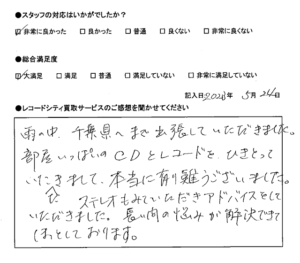 ●スタッフの対応はいかがでしたか？
☑ 非常に良かった □ 良かった □ 普通 □ 良くない □ 非常に良くない
●総合満足度
☑ 大満足 □ 満足 □ 普通 □ 満足していない □ 非常に満足していない
記入日 2023年 5月 24日
●レコードシティ買取サービスのご感想を聞かせてください
雨の中、千葉県へまで出張していただきました。
部屋いっぱいのCDとレコードを、ひきとって
いただきまして、本当に有り難うございました。
ステレオもみていただきアドバイスをして
いただきました。長い間の悩みが解決できて
ほっとしております。